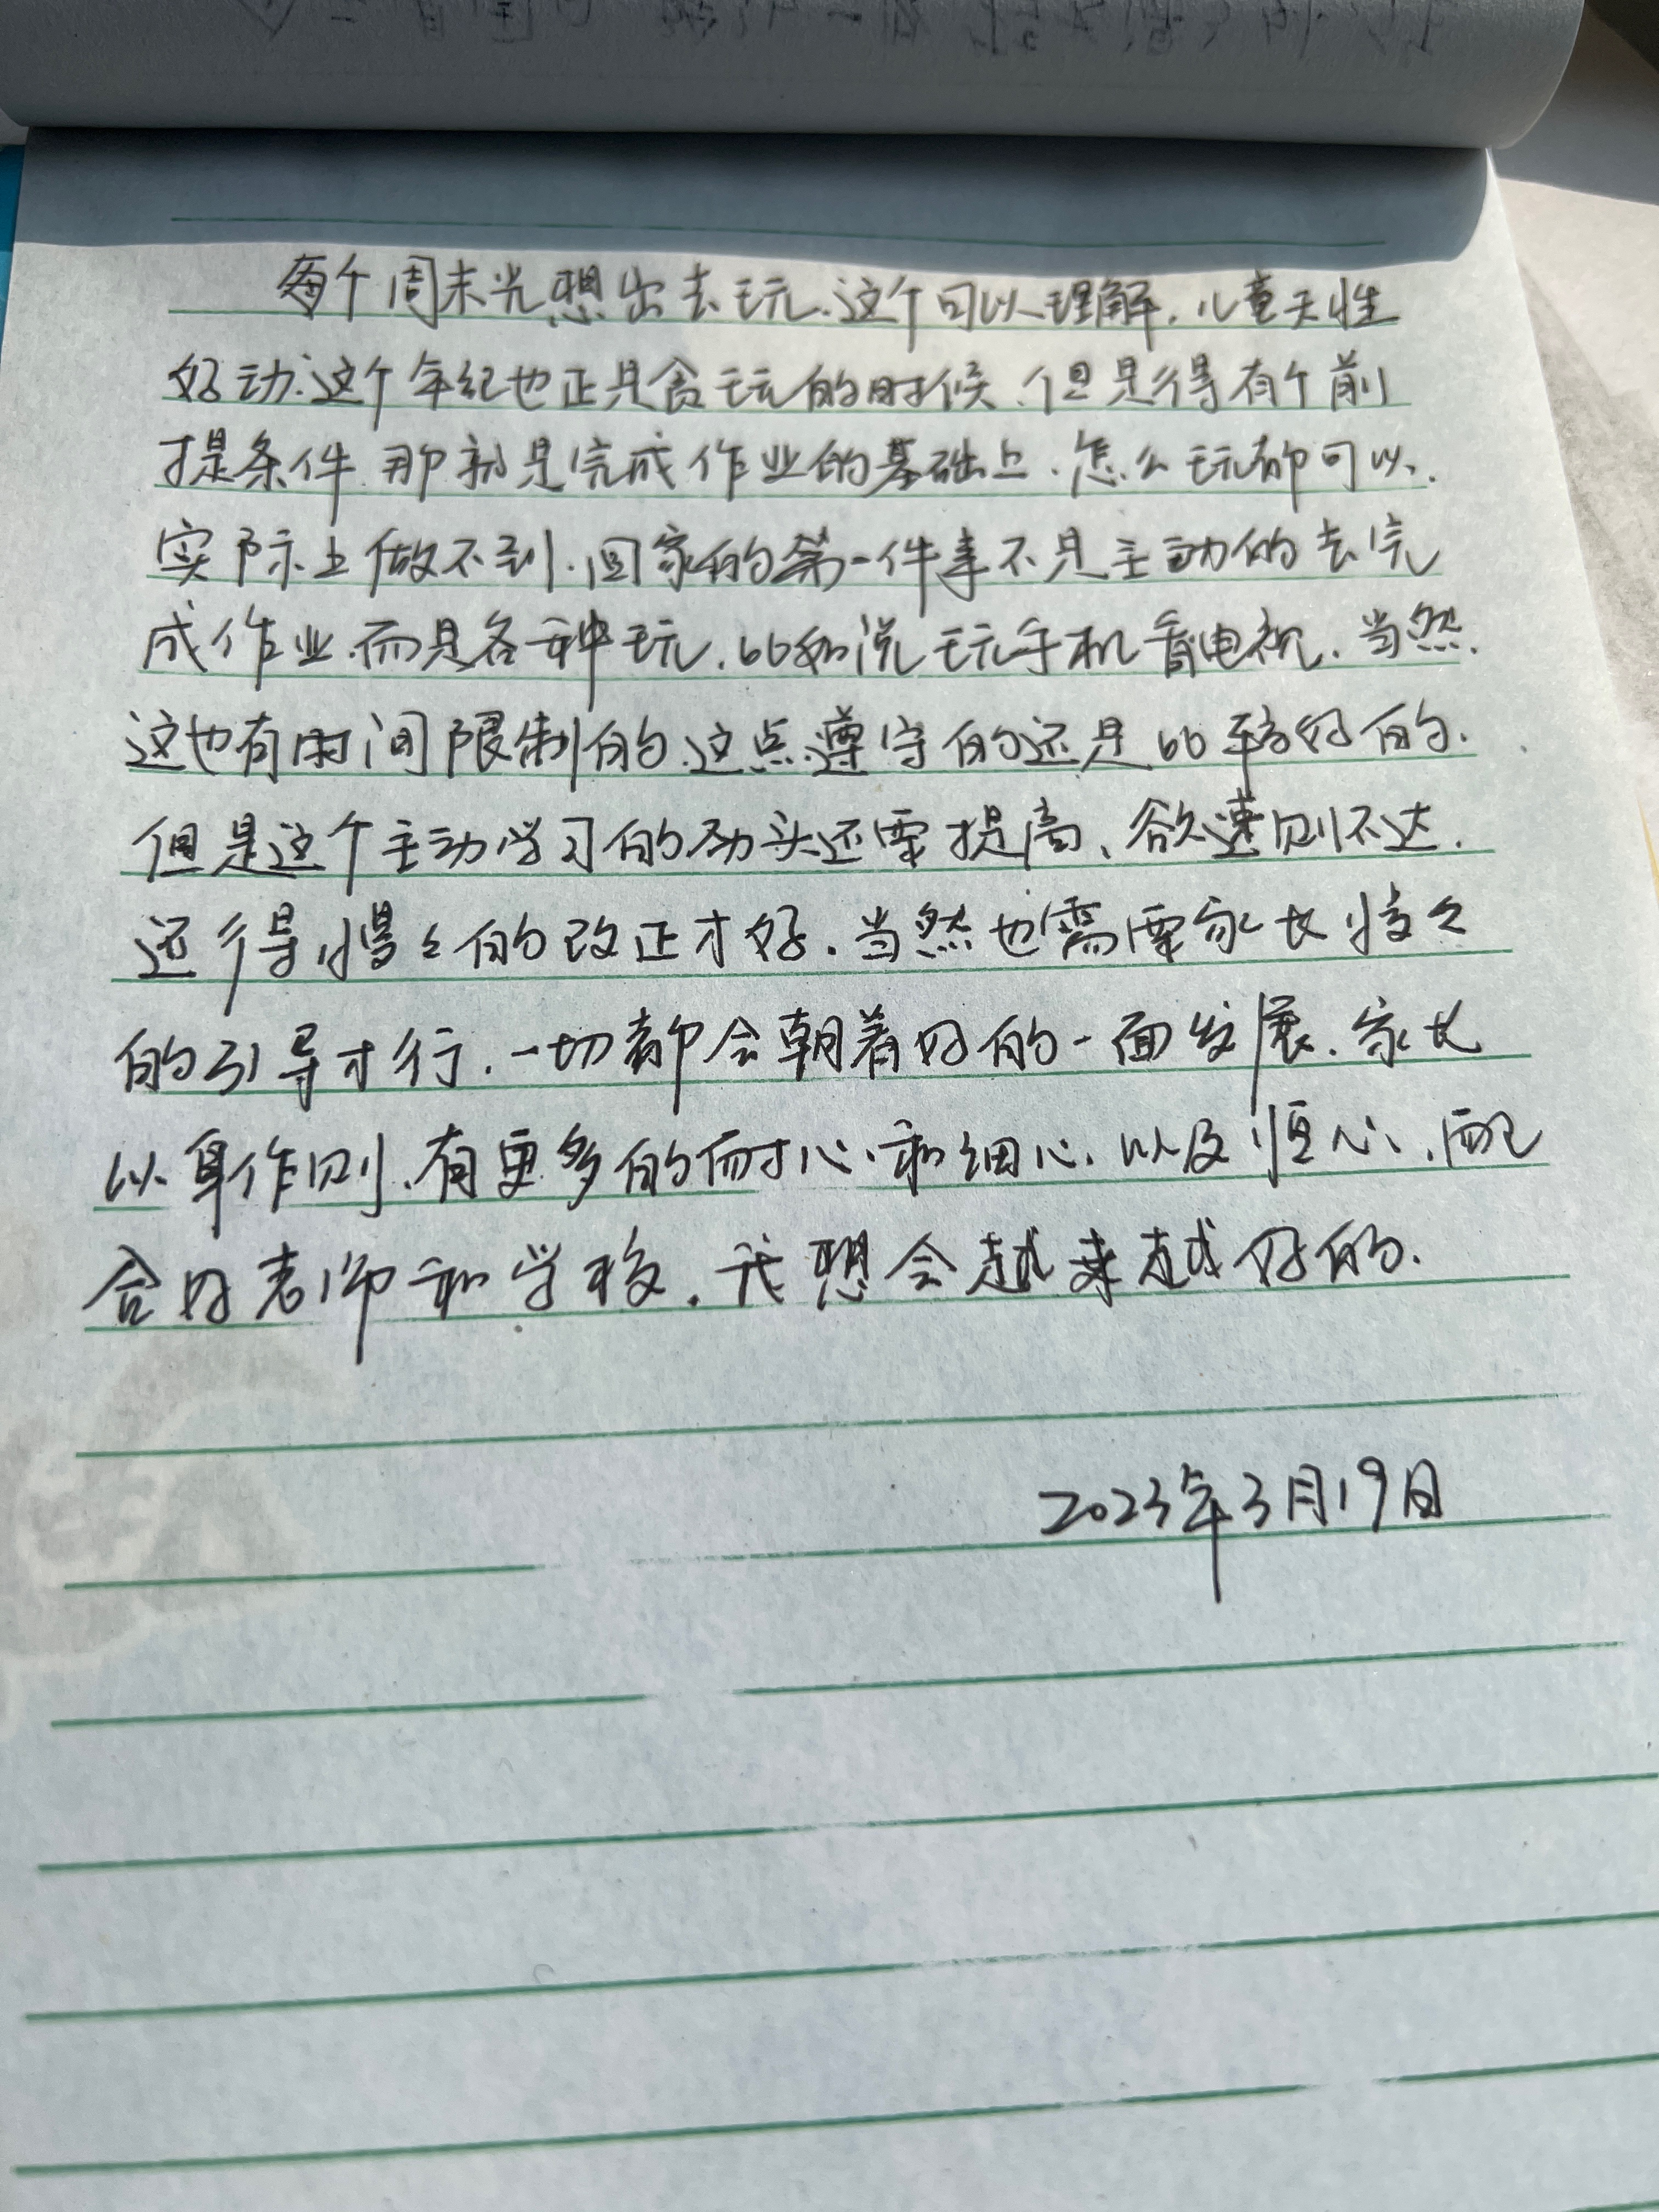 每个周末光想出去玩.这个可以理解.儿童天性
好动.这个年纪也正是贪玩的时候.但是得有个前
提条件.那就是完成作业的基础上.怎么玩都可以.
实际上做不到.回家的第一件事不是主动的去完
成作业.而是各种玩.比如说玩手机看电视.当然.
这也有时间限制的.这点遵守的还是比较好的.
但是这个主动学习的劲头还要提高、欲速则不达.
还得慢々的改正才好.当然也需要家长慢々
的引导才行.一切都会朝着好的一面发展.家长
以身作则.有更多的耐心.和细心.以及恒心.配
合好老师和学校.我想会越来越好的.
2023年3月19日